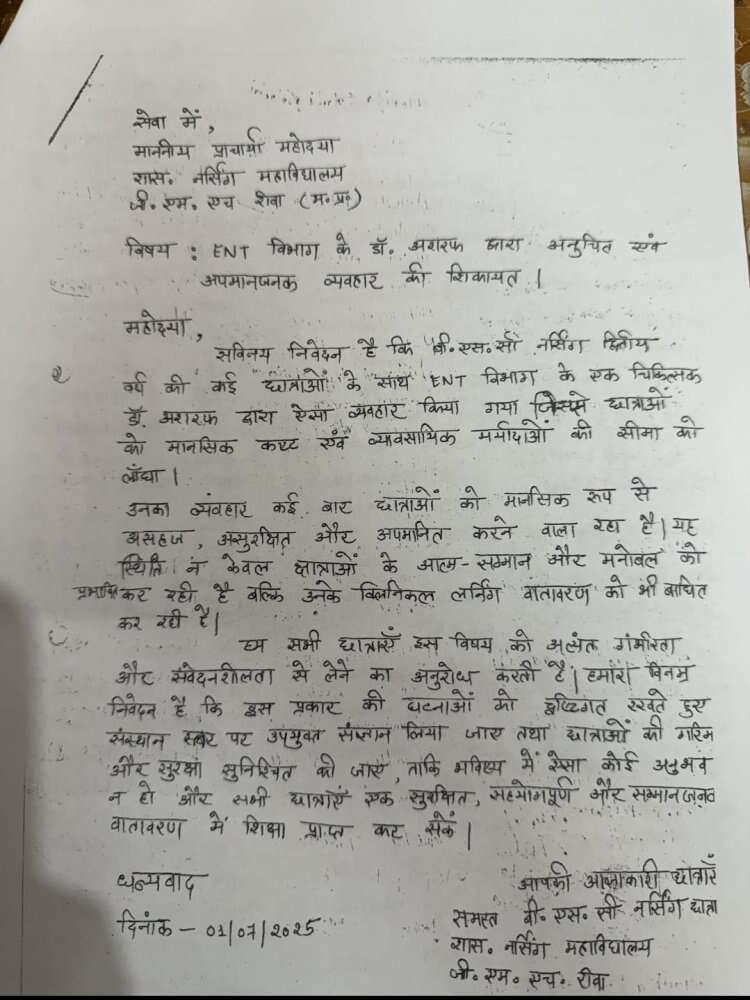 सेवा में,
माननीय प्राचार्या महोदया
शास. नर्सिंग महाविद्यालय
जी. एम. एच रीवा (म.प्र.)
विषय : ENT विभाग के डॉ. अशरफ द्वारा अनुचित एवं
अपमानजनक व्यवहार की शिकायत |
महोदया,
सविनय निवेदन है कि बी.एस.सी नर्सिंग द्वितीय
वर्ष की कई छात्राओं के साथ ENT विभाग के एक चिकित्सक
डॉ. अशरफ द्वारा ऐसा व्यवहार किया गया जिससे छात्राओं
को मानसिक कष्ट एवं व्यावसायिक मर्यादाओं की सीमा को
लाँघा |
उनका व्यवहार कई बार छात्राओं को मानसिक रूप से
असहज, असुरक्षित और अपमानित करने वाला रहा है| यह
स्थिति न केवल छात्राओं के आत्म-सम्मान और मनोबल को
प्रभावित कर रही है बल्कि उनके क्लिनिकल लर्निंग वातावरण को भी बाधित
कर रही है|
हम सभी छात्राएँ इस विषय को अत्यंत गंभीरता
और संवेदनशीलता से लेने का अनुरोध करती है| हमारा विनम्र
निवेदन है कि इस प्रकार की घटनाओं को दृष्टिगत रखते हुए
संस्थान स्तर पर उपयुक्त संज्ञान लिया जाए तथा छात्राओं की गरिम
और सुरक्षा सुनिश्चित की जाए, ताकि भविष्य में ऐसा कोई अनुभव
न हो और सभी छात्राएँ एक सुरक्षित, सहयोगपूर्ण और सम्मानजनक
वातावरण में शिक्षा प्राप्त कर सकें |
धन्यवाद
दिनांक - 01/07/2025
आपकी आज्ञाकारी छात्राएँ
समस्त बी. एस. सी नर्सिंग छात्रा
शास. नर्सिंग महाविद्यालय
जी. एम. एच. रीवा